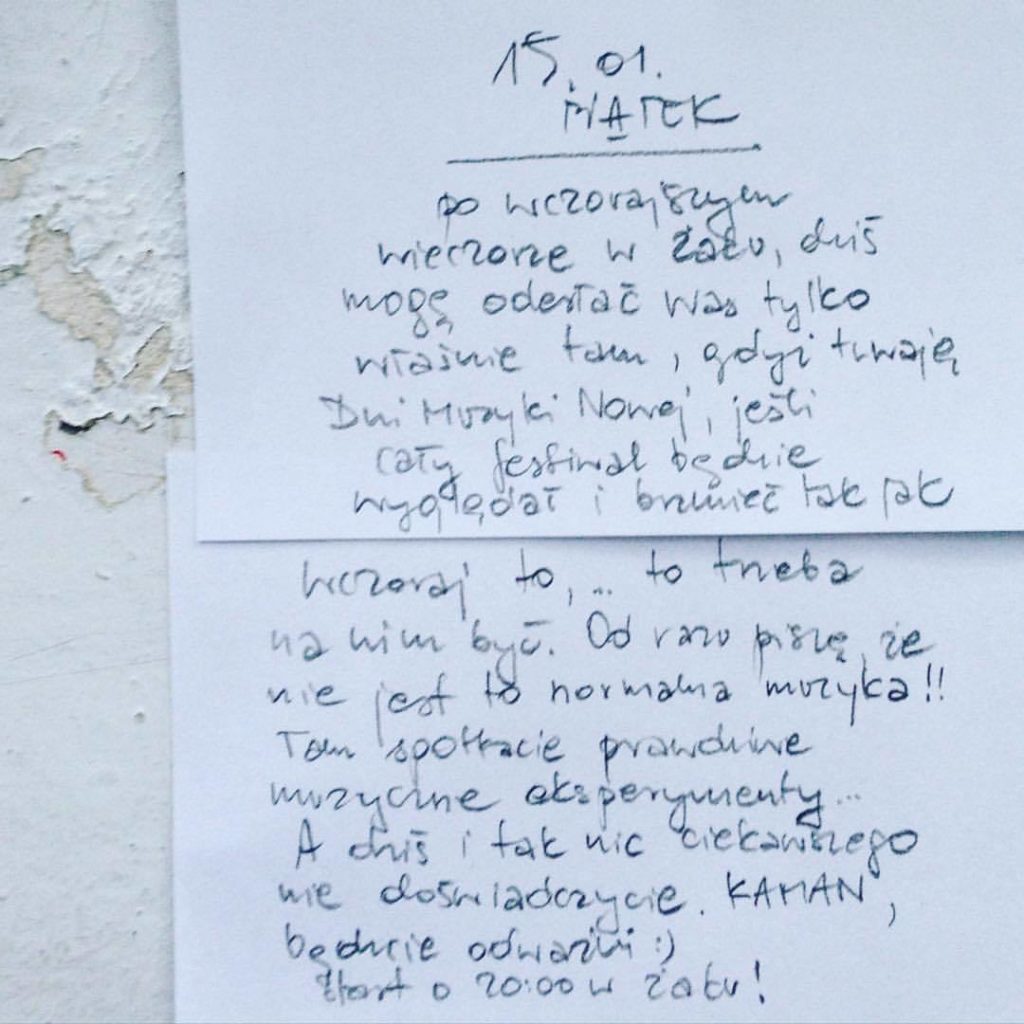 15.01.
PIĄTEK
po wczorajszym
wieczorze w Żaku, dziś
mogę odesłać Was tylko
właśnie tam, gdyż trwają
Dni Muzyki Nowej, jeśli
cały festiwal będzie
wyglądał i brzmieć tak jak
wczoraj to,... to trzeba
na nim być. Od razu piszę, że
nie jest to normalna muzyka!!
Tam spotkacie prawdziwe
muzyczne eksperymenty...
A dziś i tak nic ciekawszego
nie doświadczycie. KAMAN,
będzcie odważni :)
Start o 20:00 w Żaku!